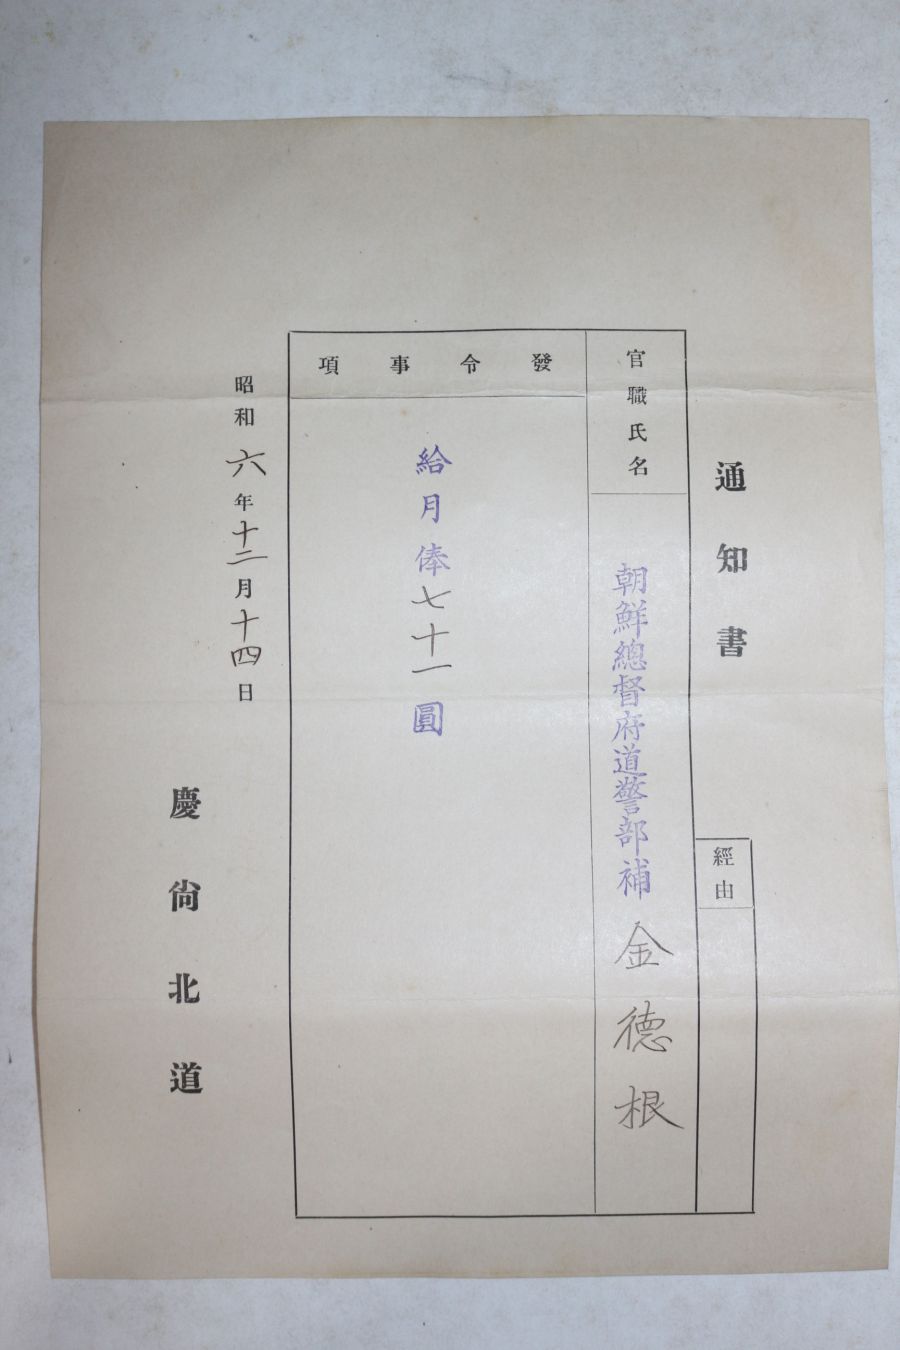 通知書
經由
官職氏名
朝鮮總督府道警部補 金德根
發令事項
給月俸七十一圓
昭和六年十二月十四日
慶尙北道